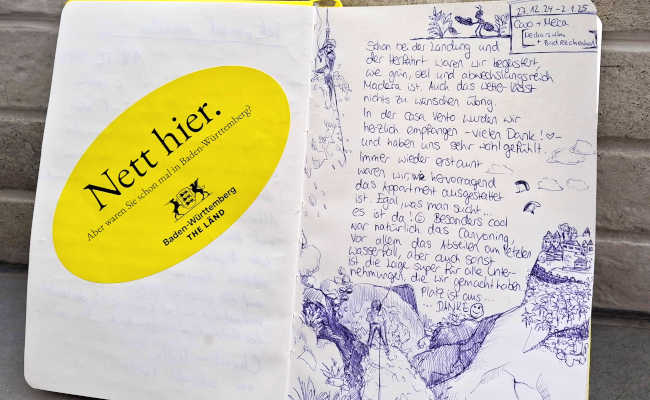 Nett hier.
Aber waren Sie schon mal in Baden-Württemberg?
Baden-Württemberg
THE LÄND
27.12.24-2.1.25
Caro + Meca
+ Bad Reichenhall
Schon bei der Landung und
der Herfahrt waren wir begeistert,
wie grün, steil und abwechslungsreich
Madeira ist. Auch das Wetter lässt
nichts zu wünschen übrig.
In der Casa Vento wurden wir
herzlich empfangen - vielen Dank! ♡ -
und haben uns sehr wohl gefühlt.
Immer wieder erstaunt
waren wir wie hervorragend
das Appartment ausgestattet
ist. Egal was man sucht...
es ist da! ☺ Besonders cool
war natürlich das Canyoning,
vor allem das Abseilen am letzten
Wasserfall, aber auch sonst
ist die Lage super für alle Unter-
nehmungen, die wir gemacht haben.
Platz ist aus...
... DANKE ☺